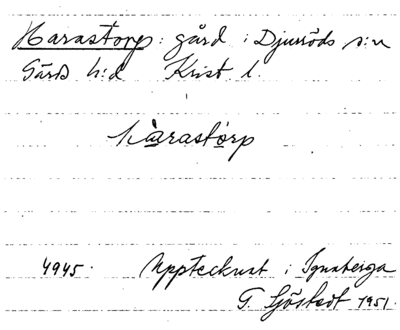 Harastorp: gård i Djurröds s:n
Gärds h:d Krist. l.
hàrastorp
4945. Upptecknat i Ignaberga
G. Sjöstedt 1951.